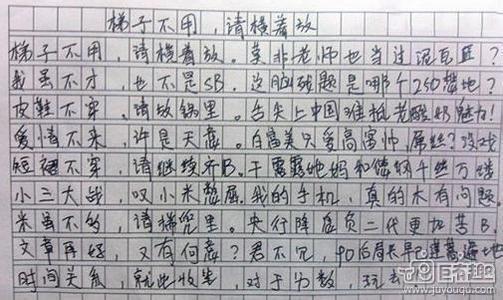 梯子不用，请横着放
梯子不用，请横着放。莫非老师也当过泥瓦匠？
我虽不才，也不是SB。这脑残题是哪个250整地？
皮鞋不穿，请放锅里。舌尖上中国难抵老酸奶魅力！
爱情不来，许是天意。白富美只爱高富帅，屌丝？没戏
短裙不穿，请继续齐B。干露露她妈和你纲千丝万缕
小三大战，叹小米憋屈。我的手机，真的木有问题。
米虽不多，请梯兜里。央行降息负二代更加苦B。
文章再好，又有何意？君不见，90后周天早已连篇遍地
时间关系，就此收笔。对于分数，玩
中国百科网
www.juyouqu.com